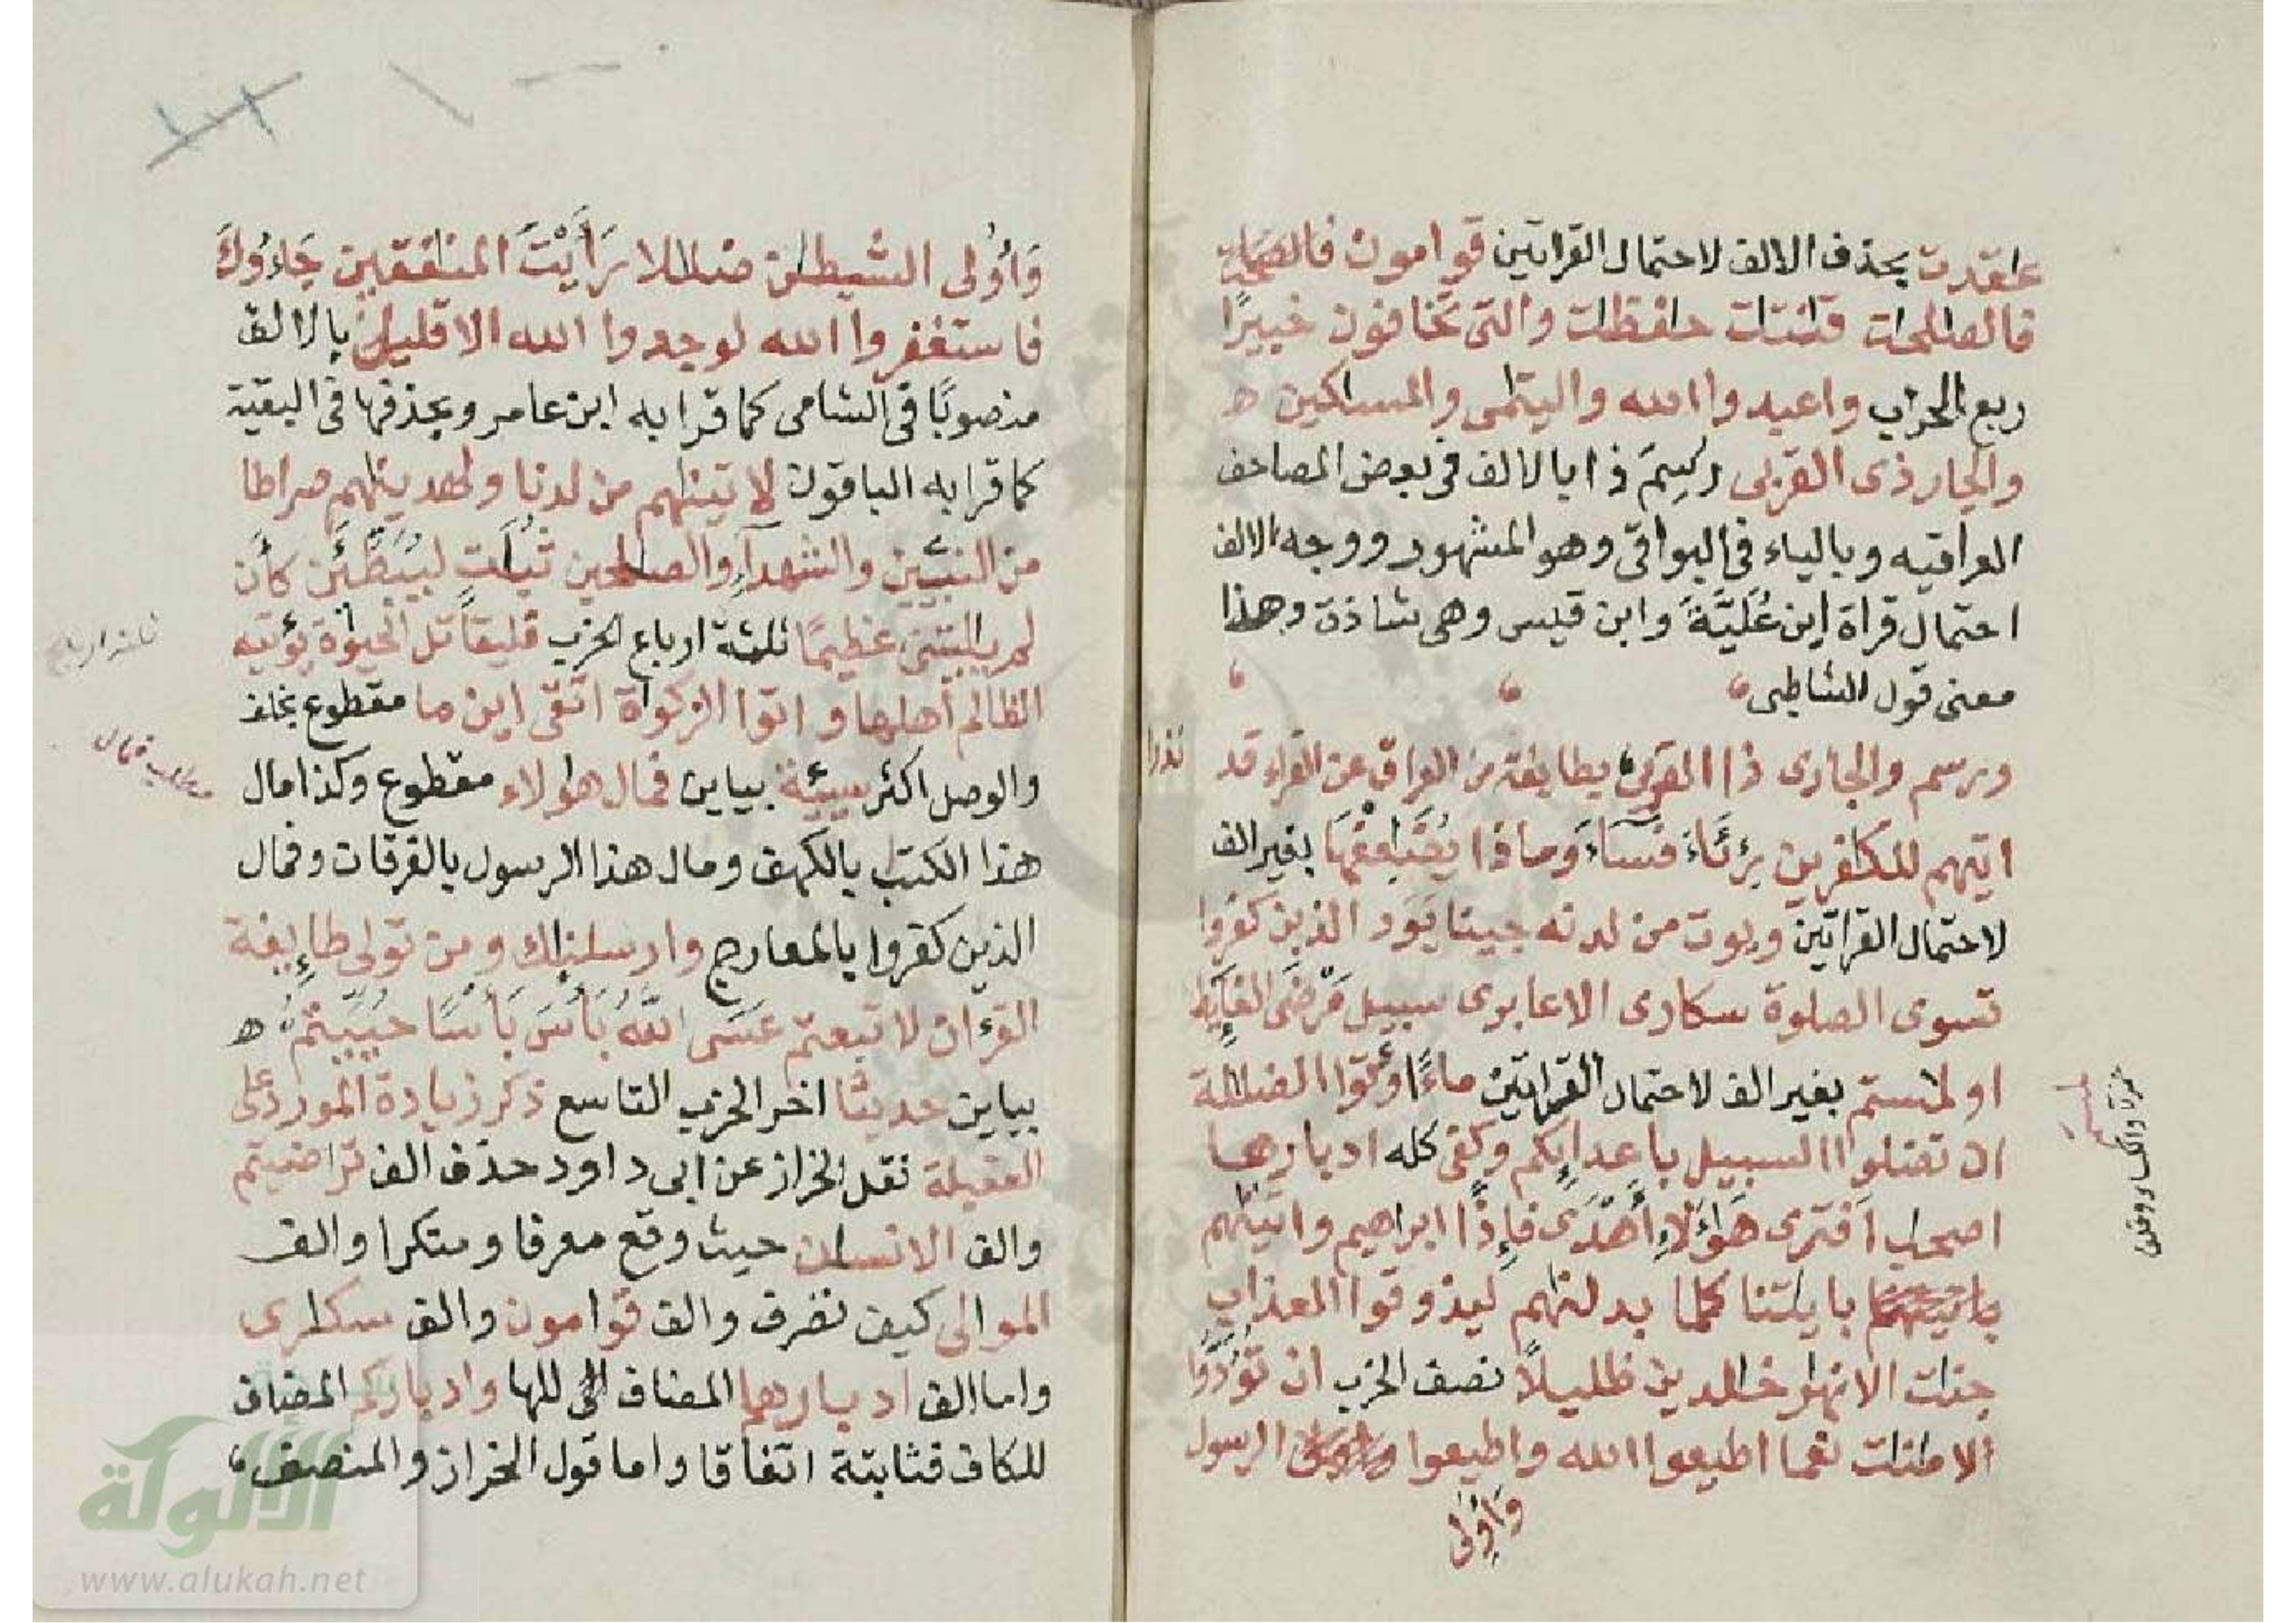 عٰقدت بحذف الالف لاحتمال القراتين قوامون فالصلحٰت
فالصٰلحٰت قٰنتٰت حٰفظٰت والتى تخافون خبيرًا
ربع الحزب واعبدوا الله واليتٰمى والمساكين ه
والجار ذى القربى رسم ذا بالالف فى بعض المصاحف
العراقيه وبالياء فى البواقى وهو المشهور ووجه الالف
احتمال قراة ابن عُلَيَّةَ وابن قيس وهى شاذة وهذا
معنى قول الشاطبى
ورسم والجارى ذا القربى بطايفة من العراق عن الفراء قد
ندرا
اتيهم للكٰفرين رئاءَ فَسَاءَ وماذا يُضٰعِفْهَا بغير الف
لاحتمال القراتين ويوت من لدنه جينا يَوَد الذين كفروا
تسوى الصلوة سكارى الا عابرى سبيل مَرْضَى الغايِط
او لٰمستم بغير الف لاحتمال القراتين ماءً اوتوا الضلٰلة
ان تضلوا السبيل باعدايِكم وكفى كله ادبارها
اصحٰب افترى هٰؤلاءِ أهْدَى فإذًا ابراهيم واتينٰهم
بايٰتنا كلما بدلنٰهم ليذوقوا العذاب
جنات الانهٰر خٰلدين ظليلًا نصف الحزب ان تُؤَدُّوا
الامٰنٰت نعما اطيعوا الله واطيعوا الرسول
وَاُولى
حمزة والكساى وخلف
وَاُولى الشيطٰن ضلٰلا رَاَيْتَ المنٰفقين جَاءُوكَ
فاستغفروا الله لوجدوا الله الا قليل بالالف
منصوبًا فى الشامى كما قرا به ابن عامر وبحذفها فى البقية
كما قرا به الباقون لاتينٰهم من لدنا ولهدينٰهم صراطا
من النبيّين والشهدآءِ والصٰلحين ثُبَاتٍ لَيُبَطِّئَن كأن
لم يٰليتنى عظيمًا ثلثة ارباع الحزب فليقاتل الحيوة يؤتيه
الظالم اهلها واتوا الزكواة اتقى اين ما مقطوع بخلف
والوصل اكثر سيّئة بياين فمال هولاء مقطوع وكذا مال
مطلب فمال
هذا الكتٰب بالكهف ومال هذا الرسول بالفرقان وفمال
الذين كفروا بالمعارج وارسلنٰك ومن تولى طايِفة
القرءان لاتبعتم عَسَى اللّهُ بَاْسَ بَاْسًا حُيِّيتم ه
بياين حديثا اخر الحزب التاسع ذكر زيادة المورد على
العقيلة نقل الخراز عن ابى داود حذف الف تراضيتم
والف الانسٰن حيث وقع معرفا ومنكرا والف
الموالى كيف تصرف والف قوامون والف سكٰرى
واما الف ادبارها المضاف الى للها وادباركم المضاف
للكاف فثابتة اتفاقا واما قول الخراز والمنصف
الألوكة
www.alukah.net